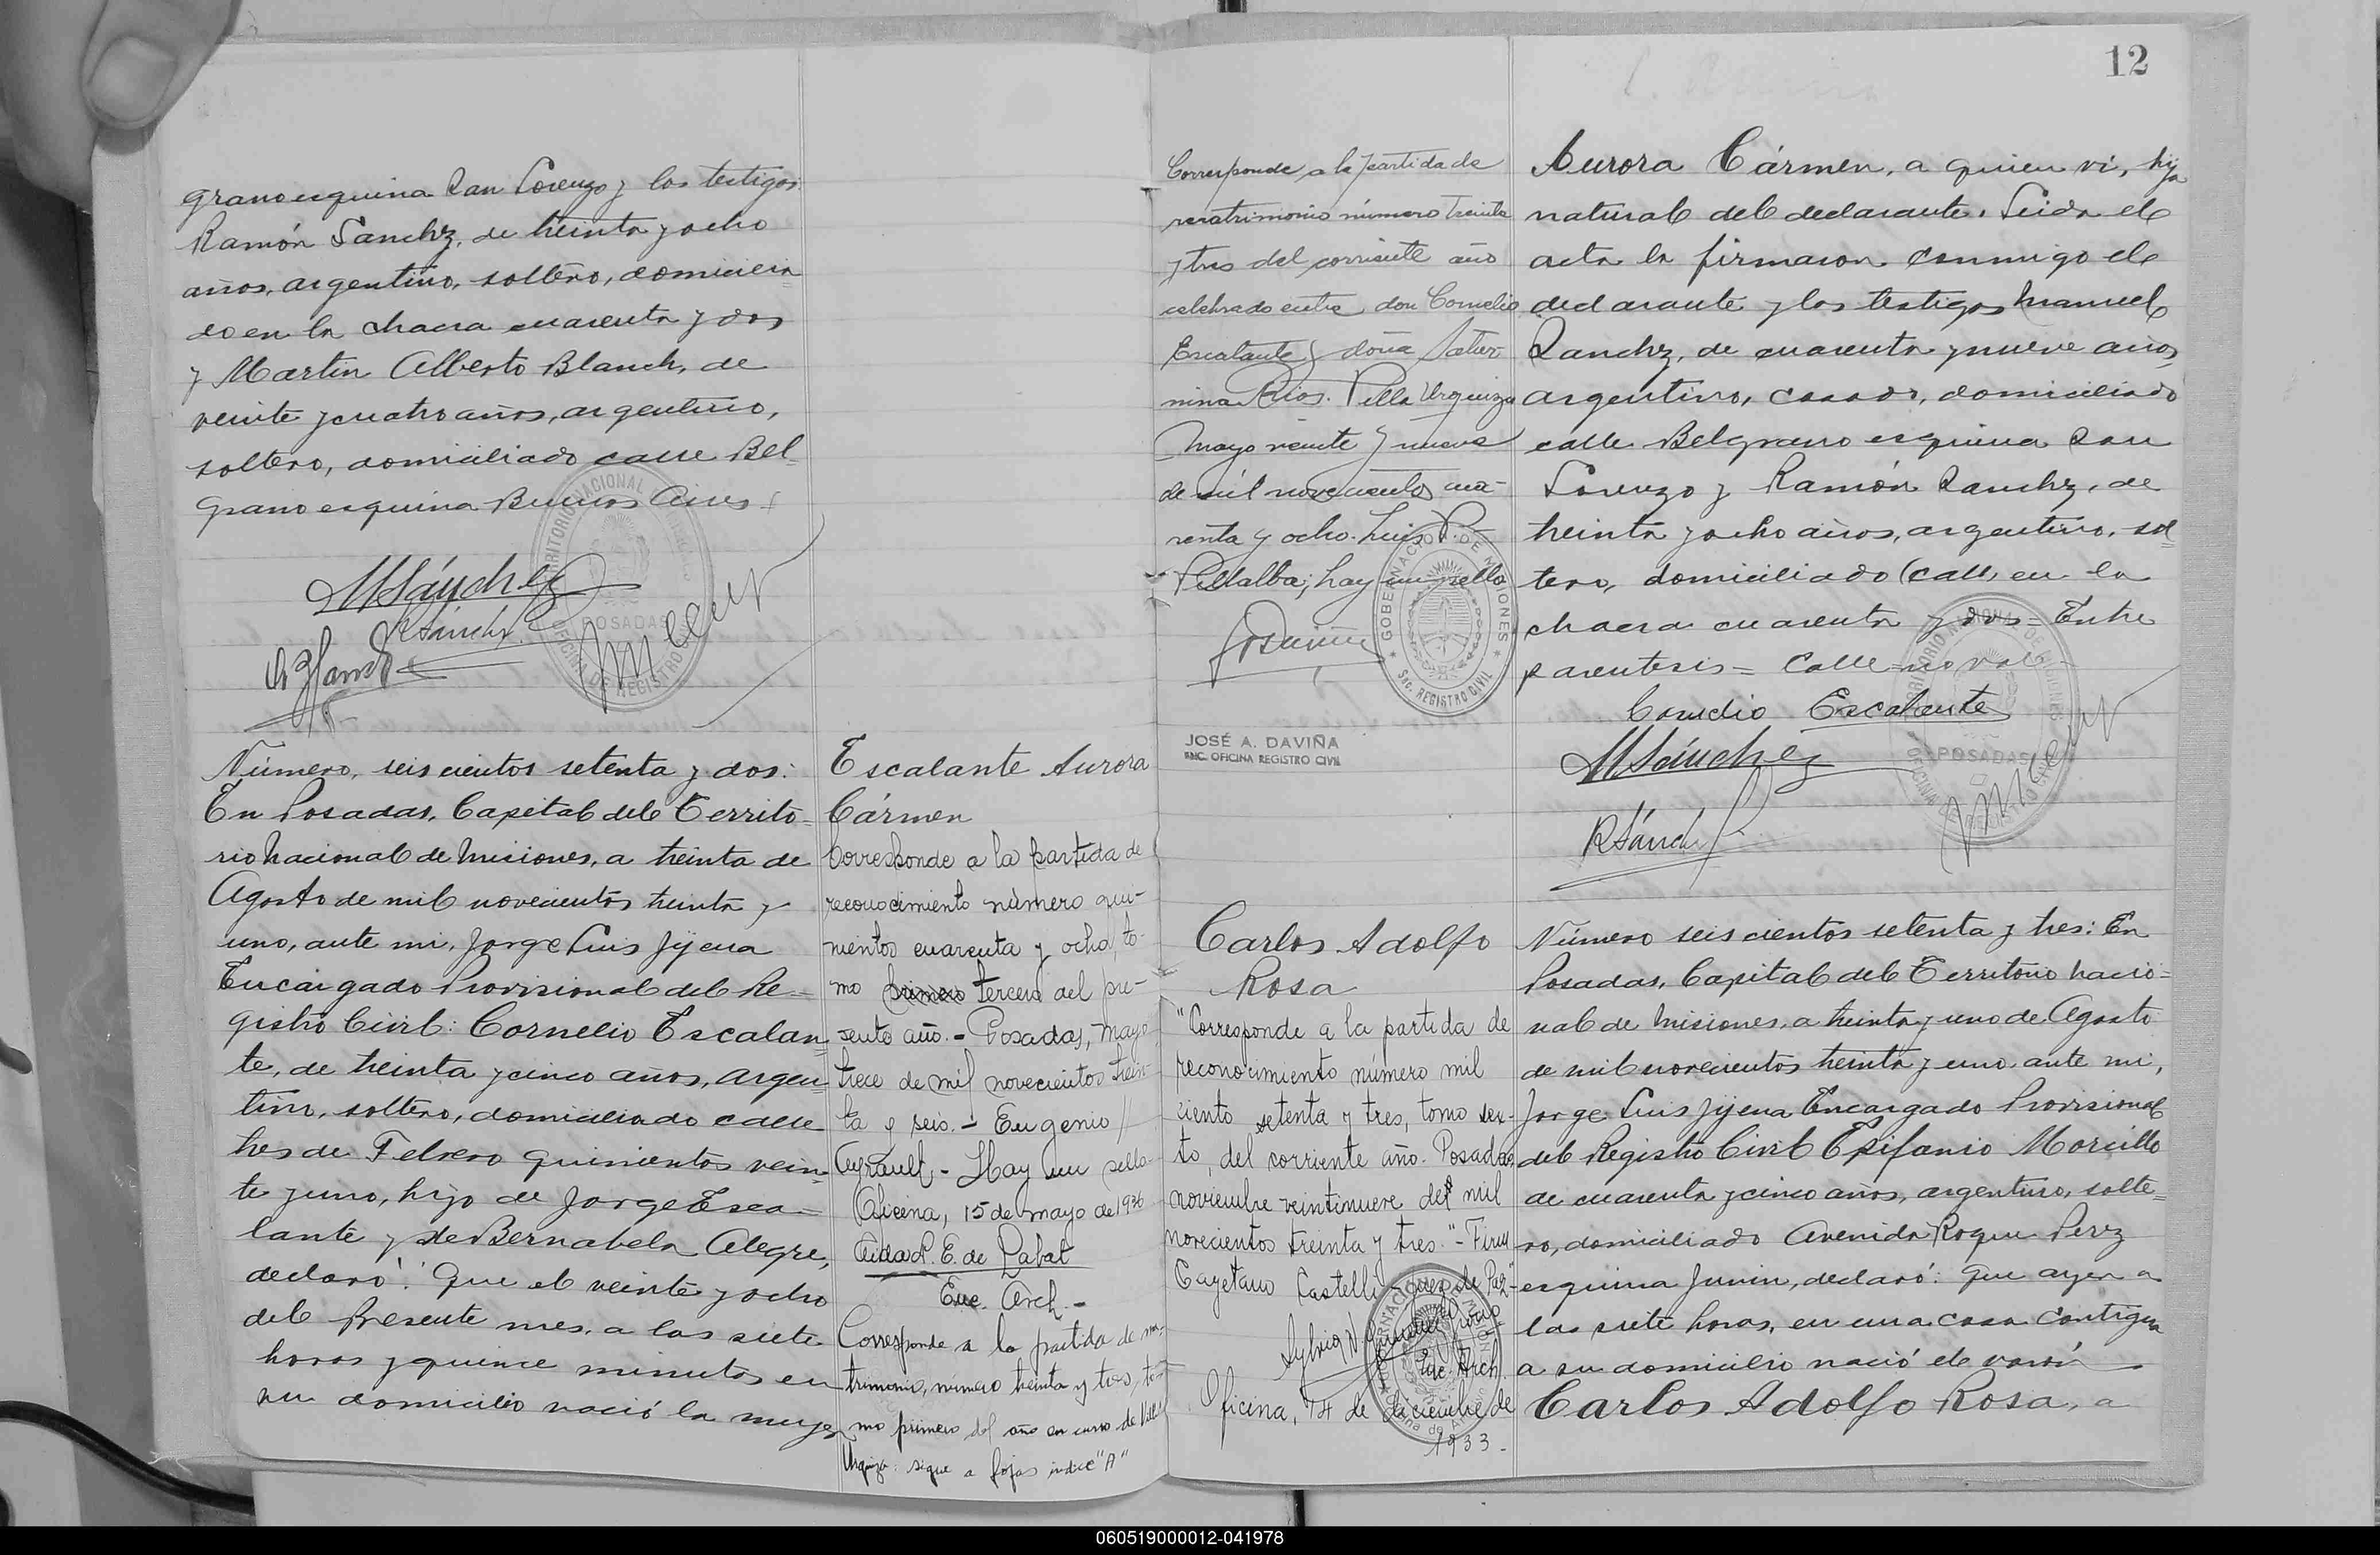 grano esquina San Lorenzo y los testigos:
Ramón Sanchz, de treinta y ocho
años, argentino, soltero, domicilia=
do en la chacra cuarenta y dos
y Martin Alberto Blanch, de
veinte y cuatro años, argentino,
soltero, domiciliado calle Bel=
grano esquina Buenos Aires.
MSánchez
RSánchz
TERRITORIO NACIONAL DE MISIONES
POSADAS
OFICINA DE REGISTRO CIVIL
Número, seis cientos setenta y dos:
En Posadas, Capital del Territo=
rio Nacional de Misiones, a treinta de
Agosto de mil novecientos treinta y
uno, ante mi, Jorge Luis Jijena
Encargado Provisional del Re=
gistro Civil: Cornelio Escalan=
te, de treinta y cinco años, argen=
tino, soltero, domiciliado calle
tres de Febrero quinientos vein=
te y uno, hijo de Jorge Esca=
lante y de Bernabela Alegre,
declaró: Que el veinte y ocho
del presente mes, a las siete
horas y quince minutos en
su domicilio nació la mujer
Escalante Aurora
Cármen
Corresponde a la partida de
reconocimiento número qui-
nientos cuarenta y ocho, to-
mo primero tercero del pre-
sente año.- Posadas, mayo
trece de mil novecientos trein-
ta y seis.- Eugenio
- Hay un sello
Oficina, 15 de mayo de 1936
Aida R. E. de Labat
Enc. Arch.-
Corresponde a la partida de ma-
trimonio, número treinta y tres, to-
mo primero del año en curso de Villa
Urquiza: sigue a fojas indice "A"
12
Corresponde a la partida de
matrimonio número treinta
y tres del corriente año
celebrado entre don Cornelio
Escalante y doña Satur
nina Rios. Villa Urquiza
Mayo veinte y nueve
de mil novecientos cua-
renta y ocho. Luis P.
Villalba; hay un sello
GOBERNACION DE MISIONES
Enc. REGISTRO CIVIL
JOSÉ A. DAVIÑA
ENC. OFICINA REGISTRO CIVIL
Carlos Adolfo
Rosa
"Corresponde a la partida de
reconocimiento número mil
ciento setenta y tres, tomo sex-
to, del corriente año. Posadas
noviembre veintinueve del mil
novecientos treinta y tres."- Firm
Cayetano Castelli Juez de Paz"
Enc. Arch.
Oficina, 14 de diciembre de
1933-
Aurora Cármen, a quien ví, hija
natural del declarante. Leida el
acta la firmaron conmigo el
declarante y los testigos Manuel
Sanchz, de cuarenta y nueve años,
argentino, casado, domiciliado
calle Belgrano esquina San
Lorenzo y Ramón Sanchz, de
treinta y ocho años, argentino, sol=
tero, domiciliado (calle, en la
chacra cuarenta y dos= Entre
parentesis= Calle=no vale=
Cornelio Escalante
MSánchez
RSánchz
TERRITORIO NACIONAL DE MISIONES
POSADAS
Número seis cientos setenta y tres: En
Posadas, Capital del Territorio Nacio=
nal de Misiones, a treinta y uno de Agosto
de mil novecientos treinta y uno, ante mi,
Jorge Luis Jijena Encargado Provisional
del Registro Civil Epifanio Morcillo
de cuarenta y cinco años, argentino, solte=
ro, domiciliado Avenida Roque Perz
esquina Junin, declaró: Que ayer a
las siete horas, en una casa contigua
a su domicilio nació el varón
Carlos Adolfo Rosa, a
060519000012-041978